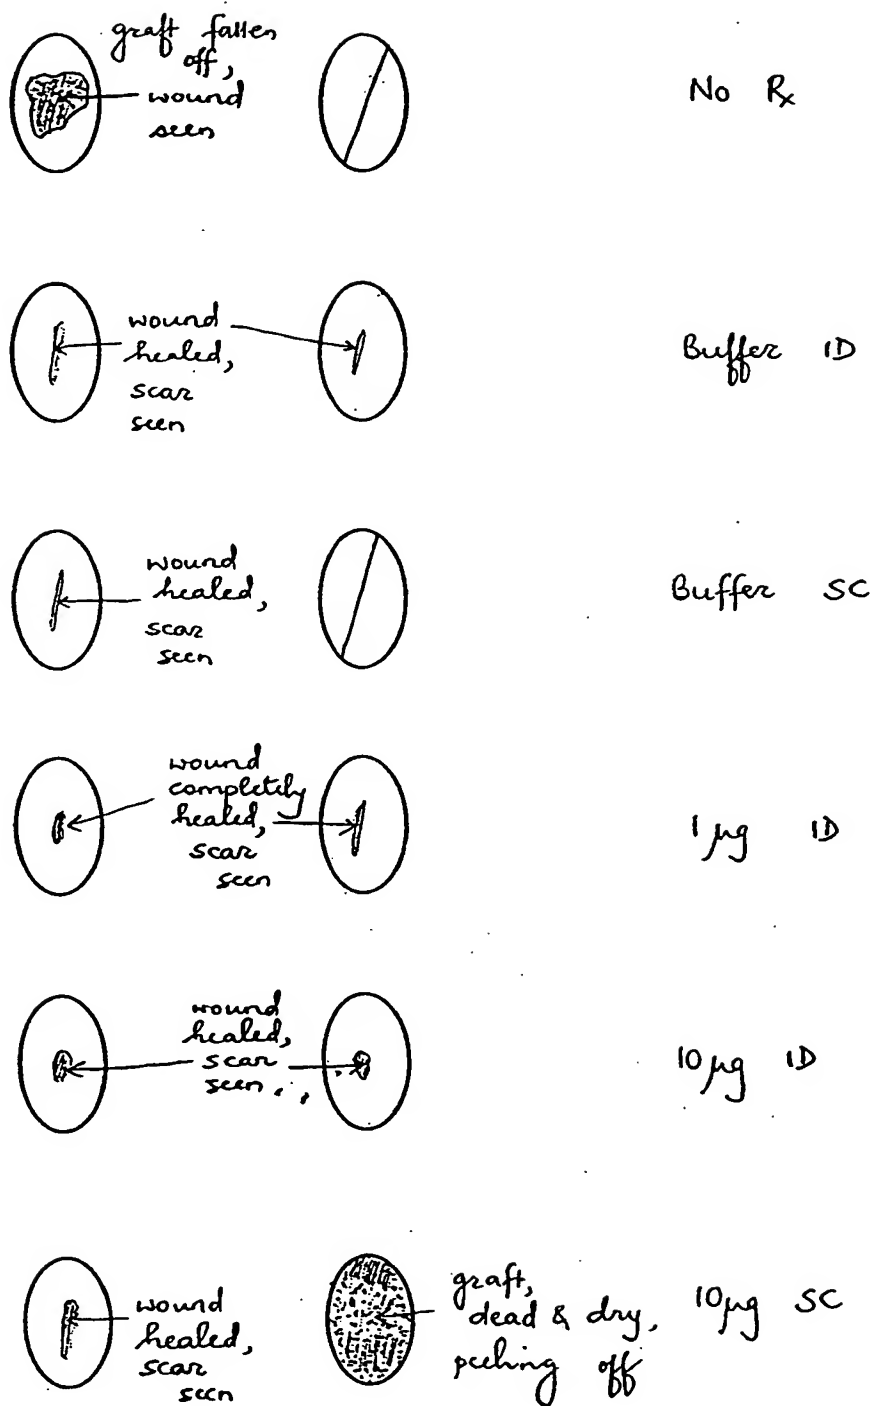 graft fallen
off,
wound
seen
No Rx
wound
healed,
scar
seen
Buffer ID
wound
healed,
scar
seen
Buffer SC
wound
completely
healed,
scar
seen
1 µg ID
wound
healed,
scar
seen
10 µg ID
wound
healed,
scar
seen
graft,
dead & dry,
peeling off
10 µg SC